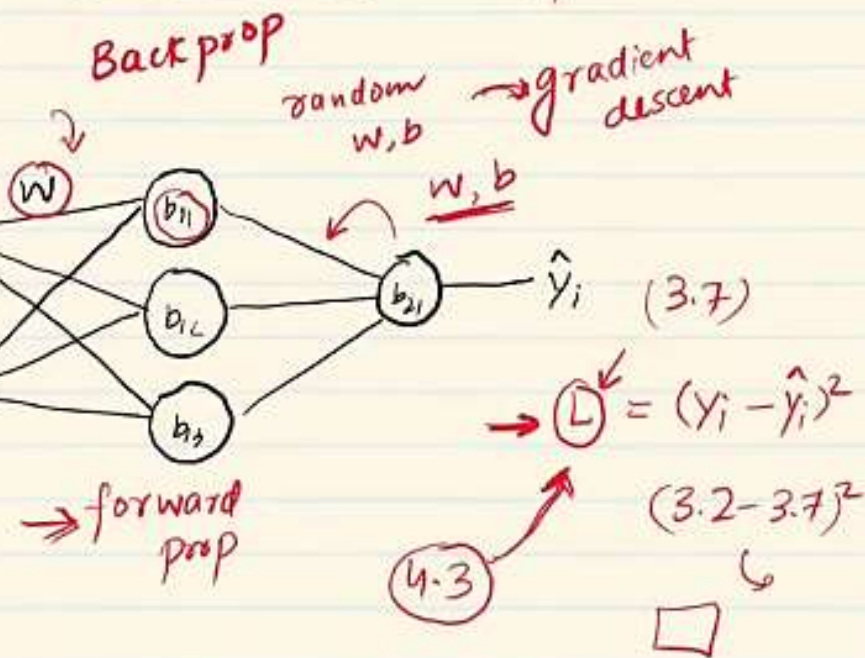 Backprop
random
w, b
→ gradient
descent
w, b
W
b11
b12
b13
b21
ŷi
(3.7)
→ L = (yi - ŷi)²
(3.2-3.7)²
4.3
→ forward
prop